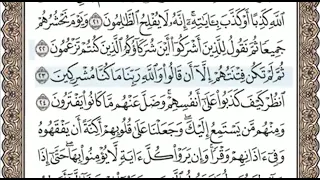 اللَّهِ كَذِبًا أَوْ كَذَّبَ بِـَٔايَـٰتِهِۦٓ ۗ إِنَّهُۥ لَا يُفْلِحُ ٱلظَّـٰلِمُونَ ٢١ وَيَوْمَ نَحْشُرُهُمْ
جَمِيعًا ثُمَّ نَقُولُ لِلَّذِينَ أَشْرَكُوٓا۟ أَيْنَ شُرَكَآؤُكُمُ ٱلَّذِينَ كُنتُمْ تَزْعُمُونَ ٢٢
ثُمَّ لَمْ تَكُن فِتْنَتُهُمْ إِلَّآ أَن قَالُوا۟ وَٱللَّهِ رَبِّنَا مَا كُنَّا مُشْرِكِينَ ٢٣
ٱنظُرْ كَيْفَ كَذَبُوا۟ عَلَىٰٓ أَنفُسِهِمْ ۚ وَضَلَّ عَنْهُم مَّا كَانُوا۟ يَفْتَرُونَ ٢٤
وَمِنْهُم مَّن يَسْتَمِعُ إِلَيْكَ ۖ وَجَعَلْنَا عَلَىٰ قُلُوبِهِمْ أَكِنَّةً أَن يَفْقَهُوهُ
وَفِىٓ ءَاذَانِهِمْ وَقْرًا ۚ وَإِن يَرَوْا۟ كُلَّ ءَايَةٍ لَّا يُؤْمِنُوا۟ بِهَا ۚ حَتَّىٰٓ إِذَا